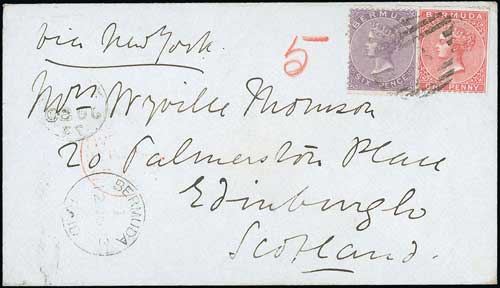 via New York.
5
BERMUDA
SIX PENCE
BERMUDA
ONE PENNY
Mrs Wyville Thomson
20 Palmerston Place
Edinburgh
Scotland.
BERMUDA